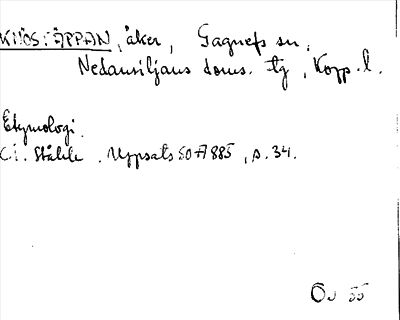 KNÖS:ÄPPAN, åker, Gagnefs sn,
Nedansiljans doms. tg, Kopp. l.
Etymologi.
C.I. Ståhle. Uppsats SOFI 885, s. 34.
ÖJ 55